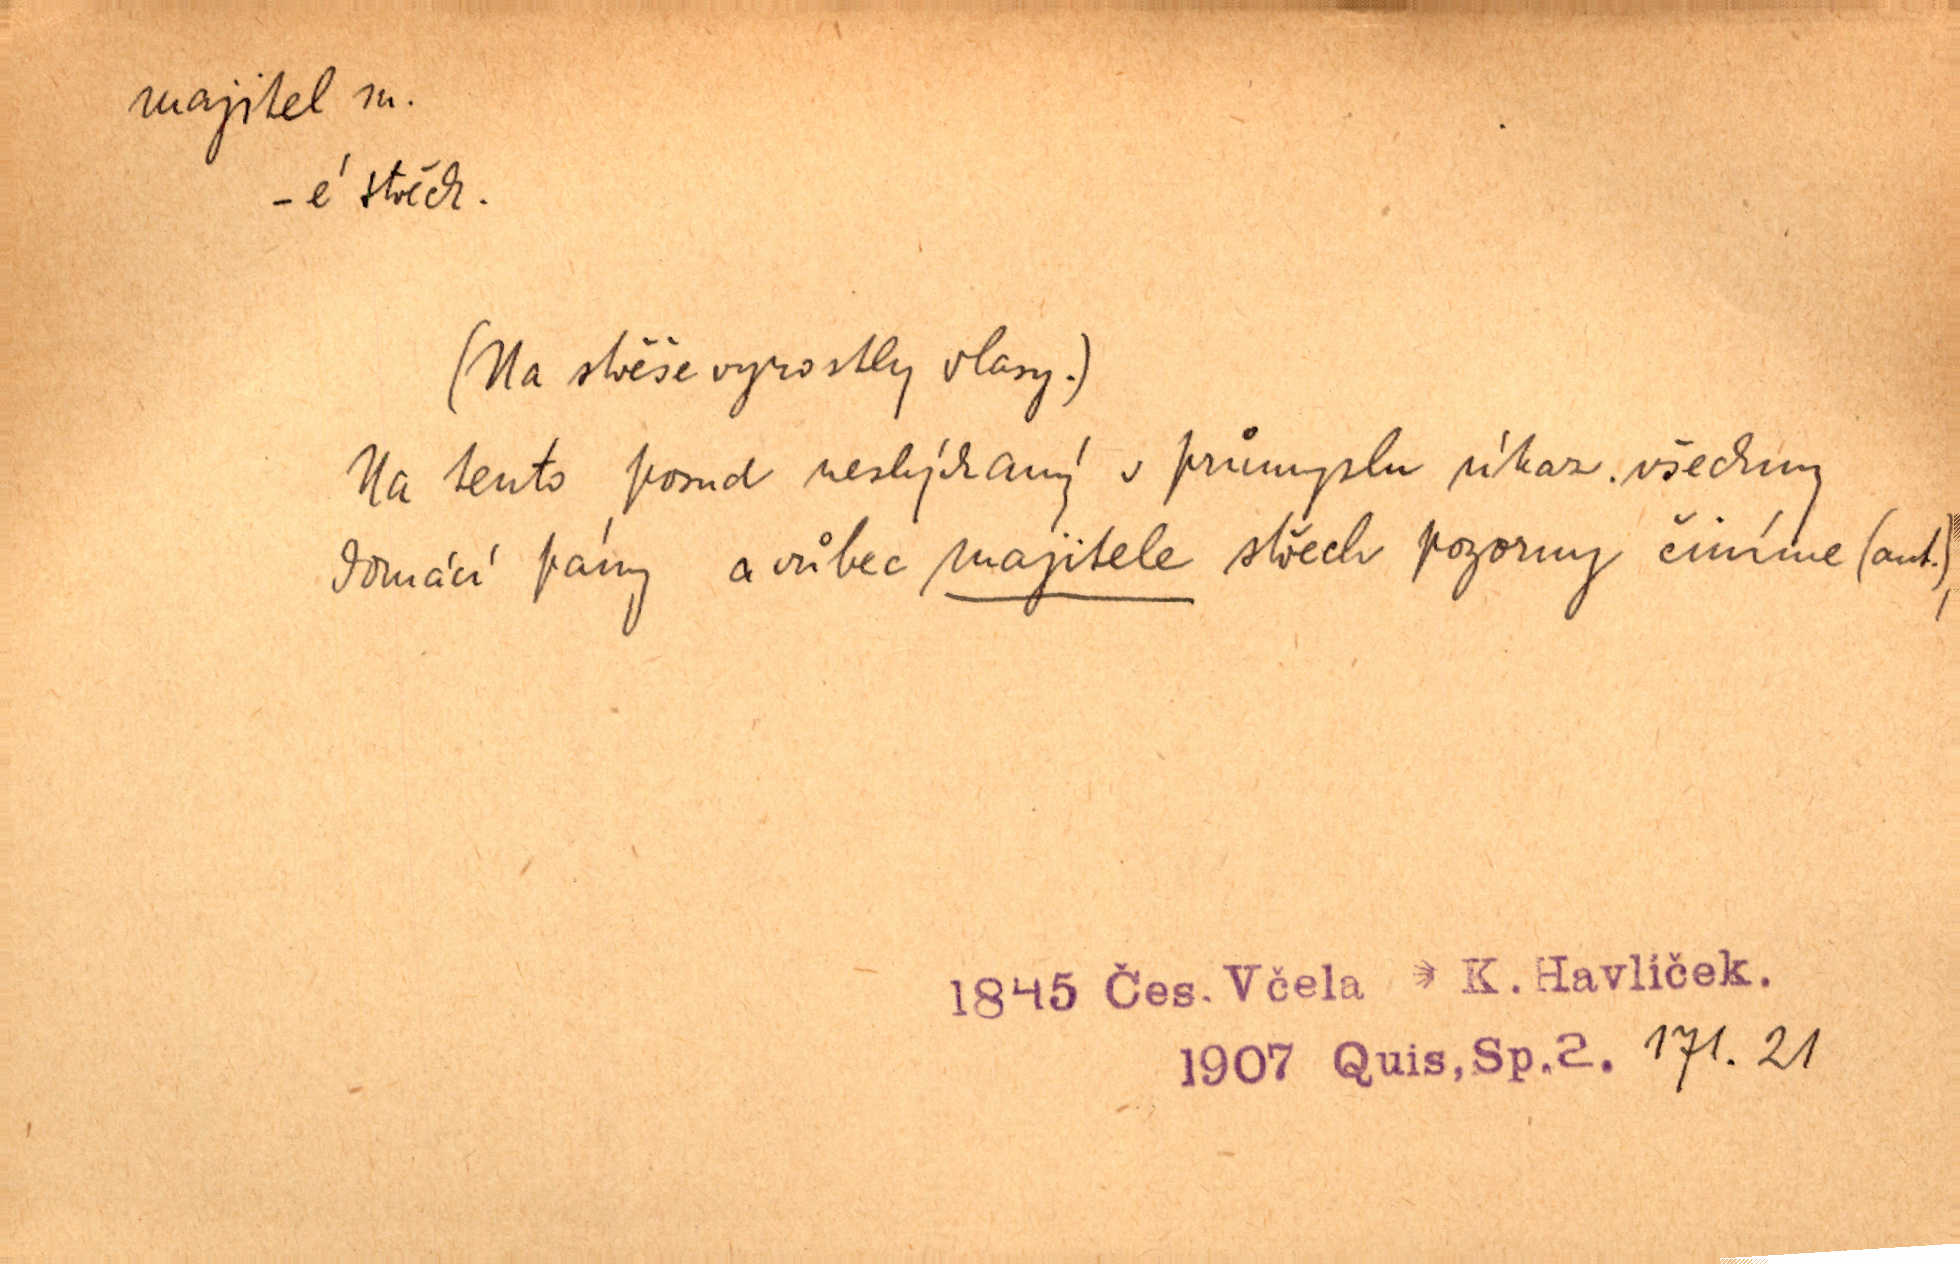 majitel m.
- é střech.
(Na střěše vyrostly vlasy.)
Na tento posud neslýchaný v průmyslu úkaz všechny
domácí pány a vůbec majitele střech pozorny činíme (aut.),
1845 Čes. Včela K. Havlíček.
1907 Quis, Sp. 2. 171. 21